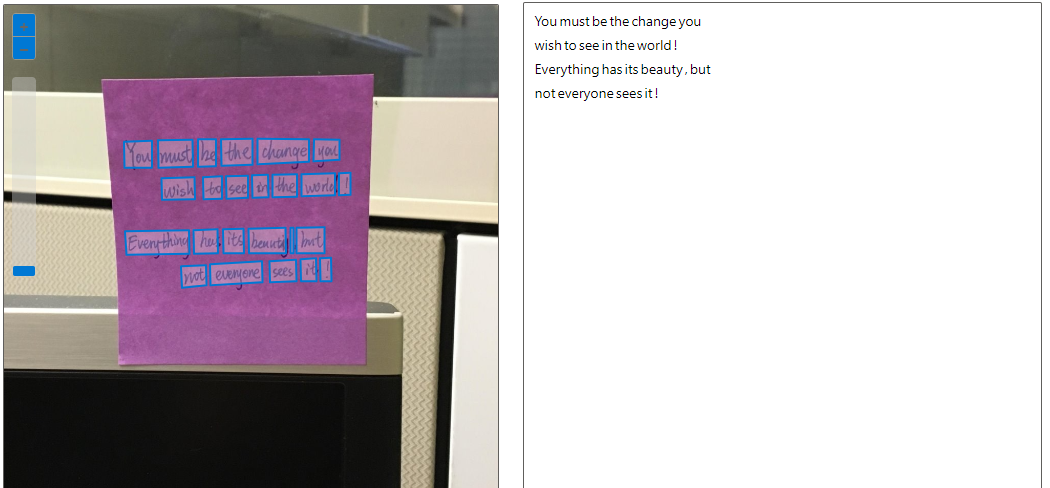 You must be the change you
wish to see in the world !
Everything has its beauty , but
not everyone sees it !
You must be the change you
wish to see in the world !
Everything has its beauty , but
not everyone sees it !